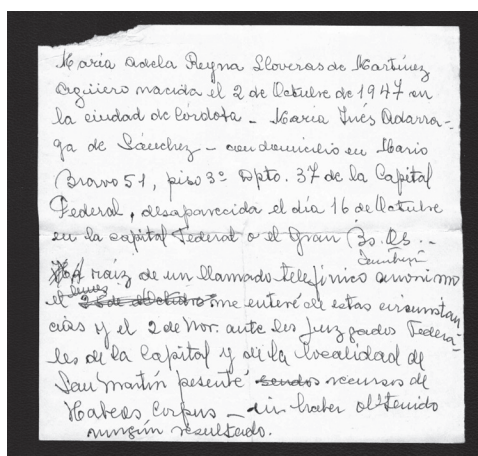 Maria Adela Reyna Lloveras de Martínez
Argüero nacida el 2 de Octubre de 1947 en
la ciudad de Córdota - Maria Inés Adarra-
ga de Sánchez - con domicilio en Mario
Bravo 51, piso 3º Dpto. 37 de la Capital
Federal, desaparecida el día 16 de Octubre
en la capital Federal o el Gran Bs. As. -
A raíz de un llamado telefónico anonimo
el lunes me enteré de estas circunstan
cias y el 2 de Nov. ante los Juzgados Federa-
les de la Capital y de la localidad de
San Martín presenté sendos recursos de
Habeas Corpus - sin haber obtenido
ningún resultado.